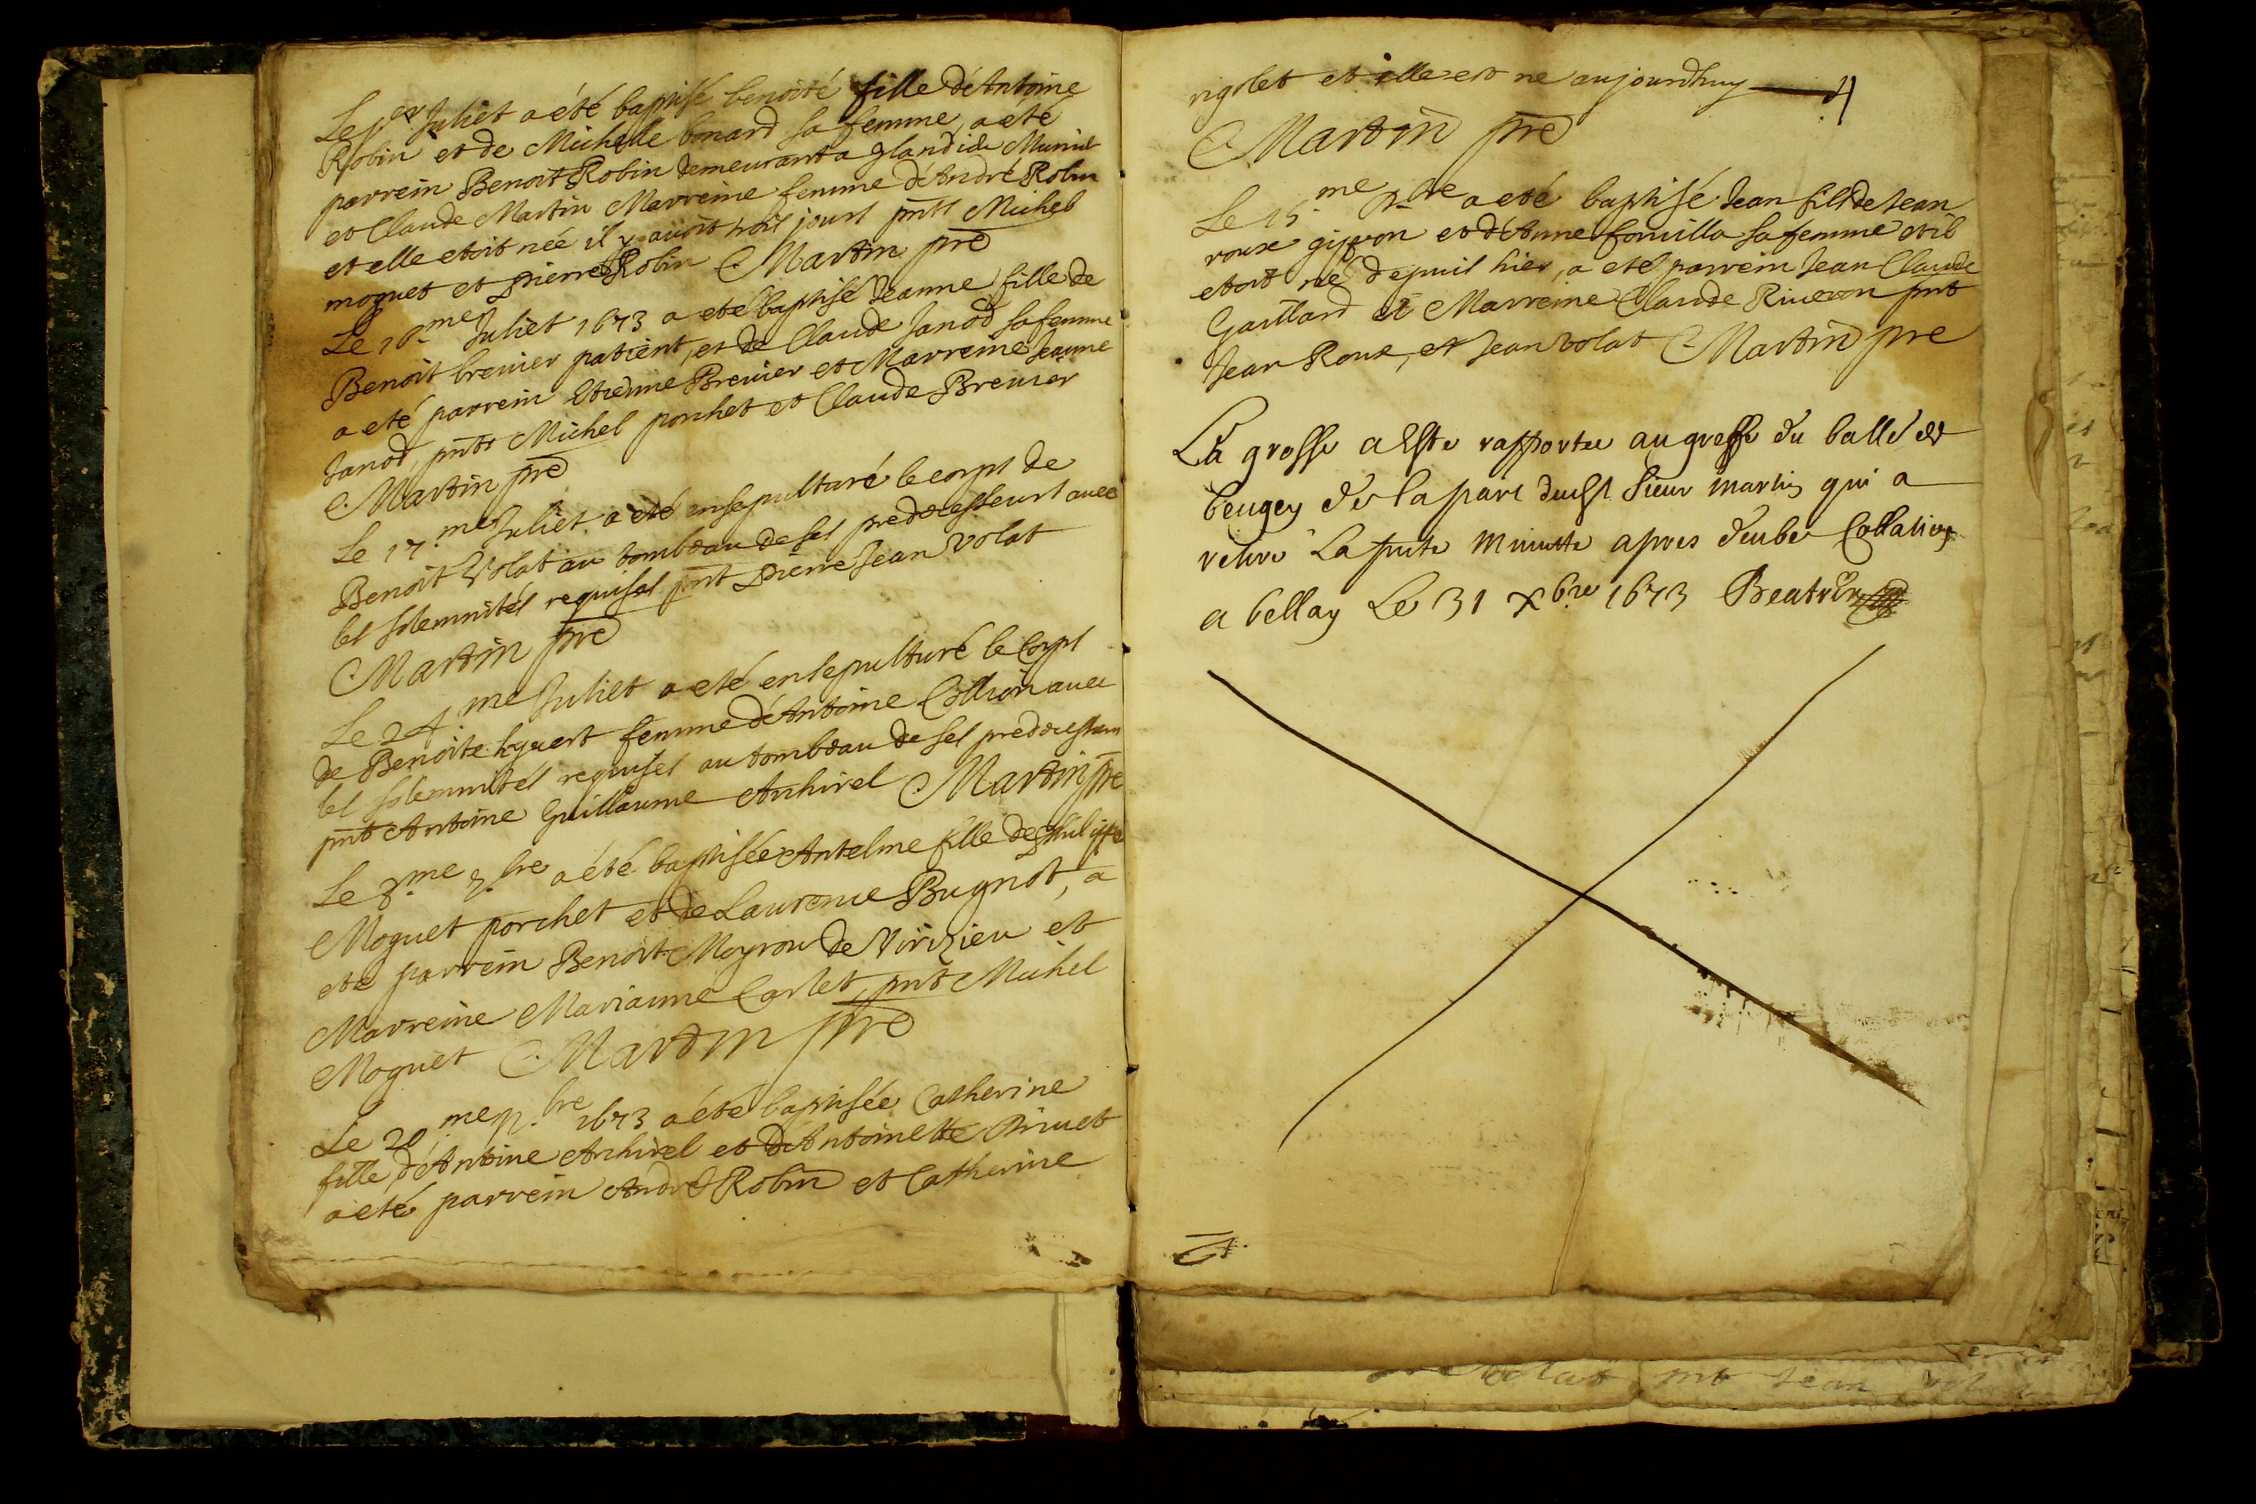 Le p.er Juliet a été baptisé benoité fille d'Antoine
Robin et de Michelle bonard sa femme, a été
parrein Benoit Robin demeurant a glandieu
et Claude Martin Marreine femme d'André Robin
et elle etoit née il y avoit trois jours pnts Michel
moguet et Pierre Robin Martin pre
Le 16.me Juliet 1673 a eté baptisé Jeanne fille de
Benoit brevier patient, et de Claude Janod sa femme
a eté parrein Etienne Brevier et Marreine Jeanne
Janod, pnts Michel porchet et Claude Brevier
Martin pre
Le 17.me Juliet a été ensepulturé le corps de
Benoit Volat au tombeau de ses predecesseurs avec
les solemnités requises pnt Pierre Jean Volat
Martin pre
Le 24.me Juliet a eté ensepulturé le Corps
de Benoite hyvert femme d'Antoine Collion avec
les solemnités requises au tombeau de ses predecesseurs
pnt Antoine Guillaume Anhivel Martin pre
Le 8.me 7.bre a été baptisée Antelme fille de Philippe
Moguet porchet et de Laurence Bugnot, a
eté parrein Benoit Moyrou de Virizieu et
Marreine Marianne Carlet, pnt Michel
Moguet Martin pre
Le 20.me 7.bre 1673 a été baptisée Catherine
fille d'Antoine Anhivel et d'Antoinette
a eté parrein André Robin et Catherine
rigolet et elle est ne aujourdhuy 4
Martin pre
Le 15.me bre a eté baptisé Jean fils de Jean
roux gippon et d'Anne fouilla sa femme et il
etoit né depuis hier, a eté parrein Jean Claude
Gaillard et Marreine Claude Riveron pnt
Jean Roux, et Jean Volat Martin pre
La grosse a Este rapportee au greffe du balle de
beugey de la part dudt Sieur martin qui a
retiré la pnte minutte apres deube Collation
a bellay Le 31 Xbre 1673 Beatrix